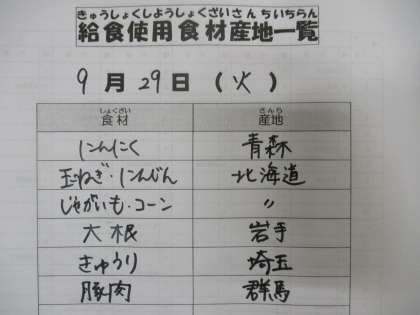 きゅうしょくしようしょくざいさんちいちらん
給食使用食材産地一覧
9月29日(火)
しょくざい さんち
食材 産地
にんにく 青森
玉ねぎ・にんじん 北海道
じゃがいも・コーン 〃
大根 岩手
きゅうり 埼玉
豚肉 群馬